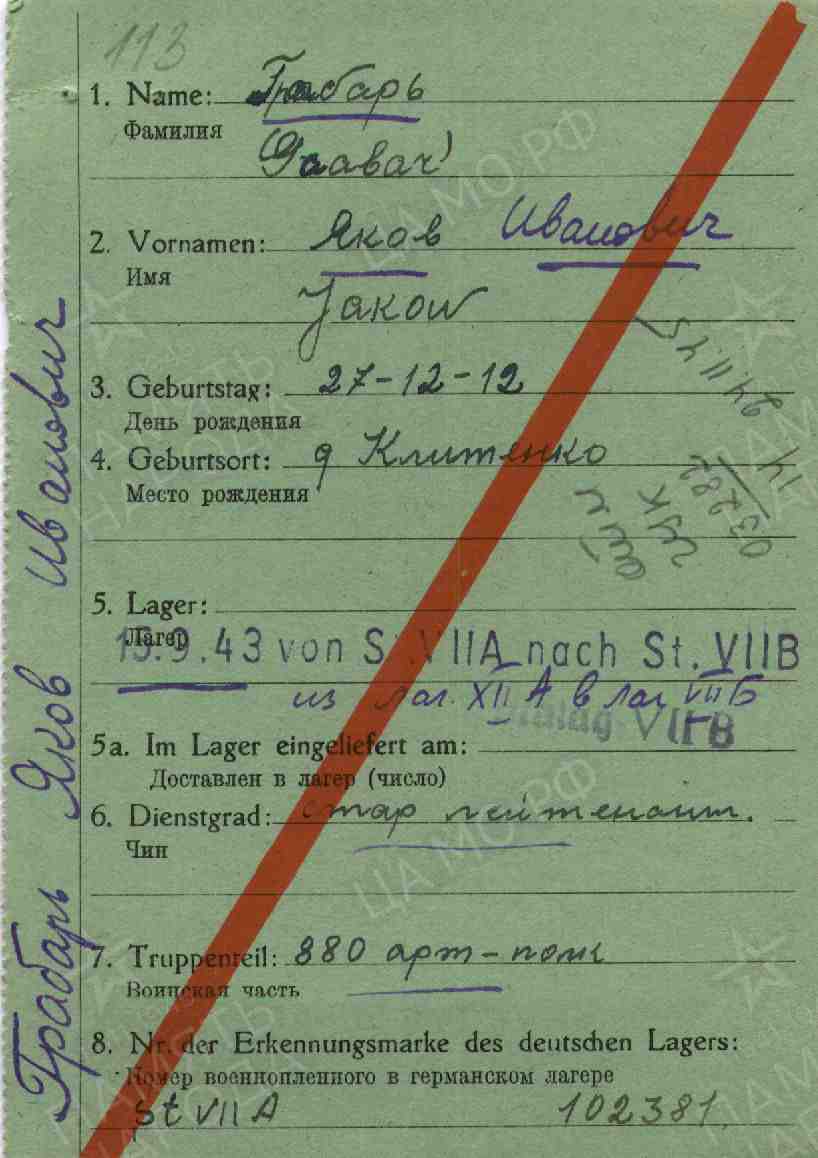 113
1. Name: Грабарь
Фамилия
2. Vornamen: Яков Иванович
Имя
Jakow
3. Geburtstag: 27-12-12
День рождения
4. Geburtsort: д Клитенко
Место рождения
5. Lager:
Лагер
15.9.43 von St. VIIA nach St. VIIB
из лаг. XII А в лаг VII Б
Stalag VII B
5a. Im Lager eingeliefert am:
Доставлен в лагер (число)
6. Dienstgrad: стар лейтенант.
Чин
7. Truppenteil: 880 арт-полк
Воинская часть
8. Nr. der Erkennungsmarke des deutschen Lagers:
Номер военнопленного в германском лагере
St VII A 102381
Грабарь Яков Иванович
ЦА МО РФ
ПАМЯТЬ НАРОДА